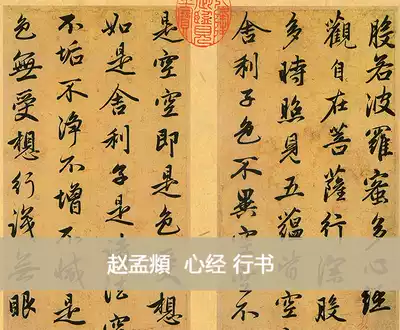 般若波羅蜜多心經
觀自在菩薩行深般
多時照見五蘊皆空
舍利子色不異空空不
是空空即是色受想
如是舍利子是諸法空
不垢不净不增不減是
色無受想行識無眼
赵孟頫 心经 行书